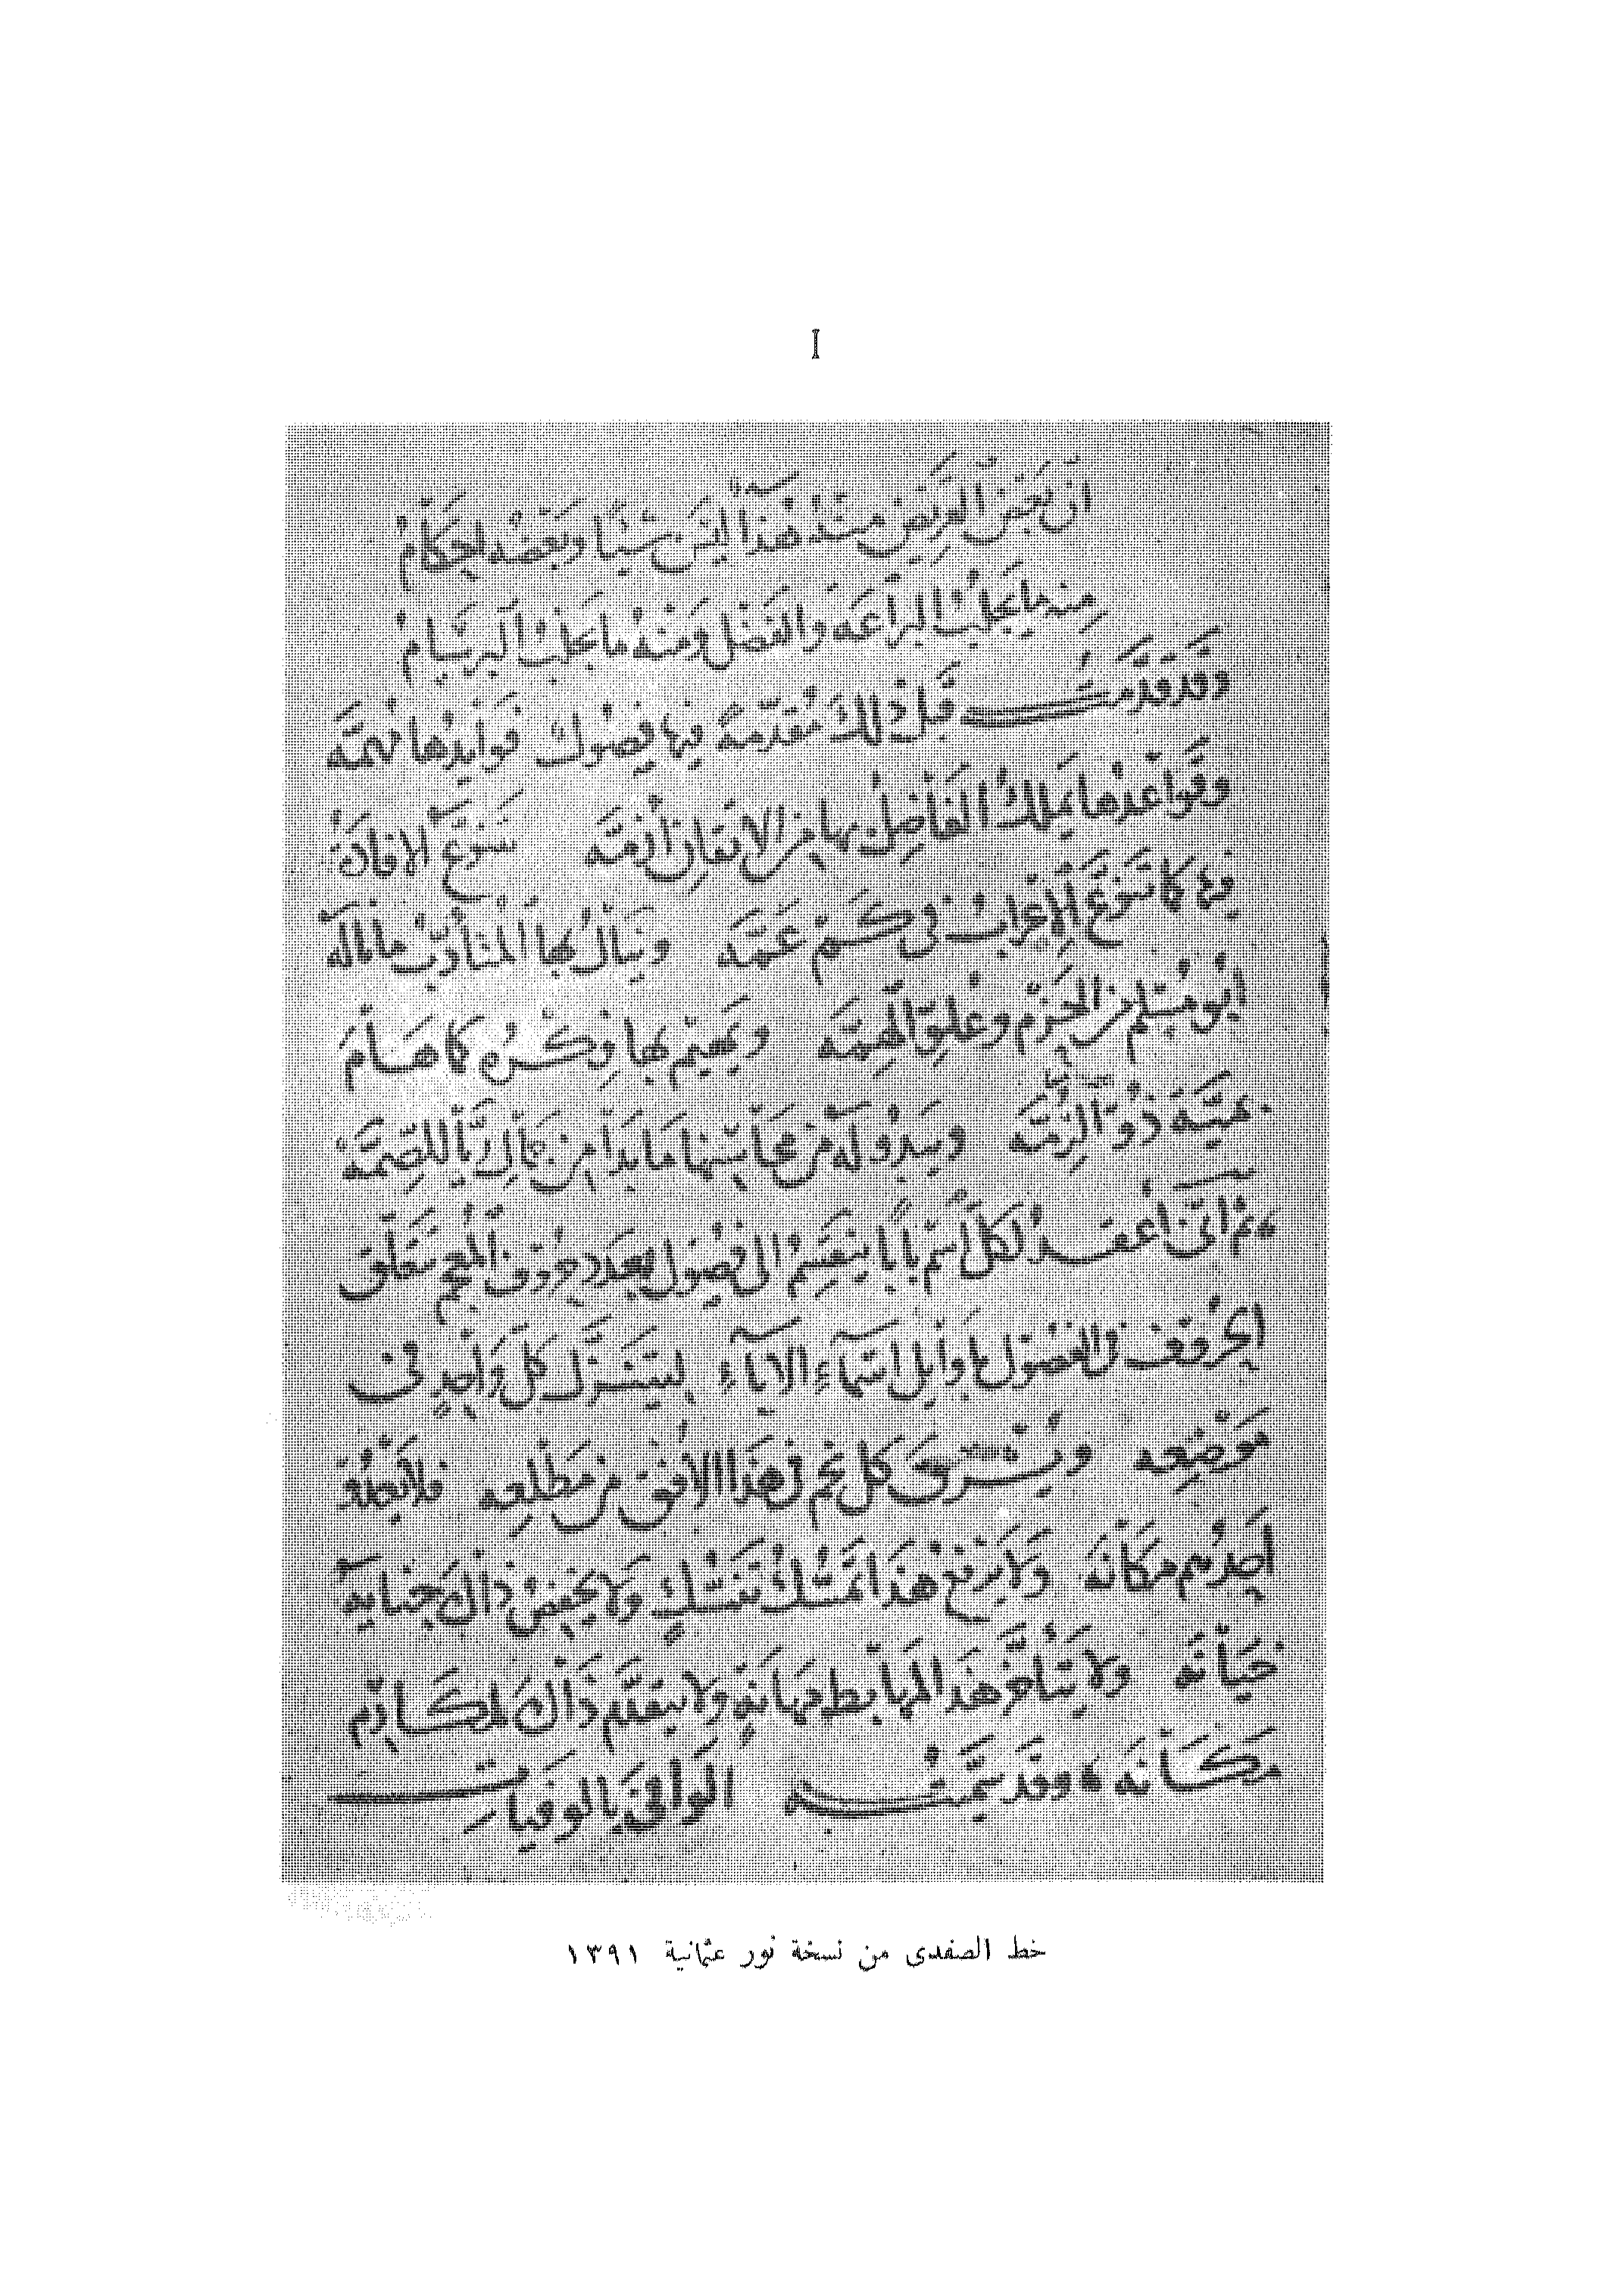 I
ان بعض القريض منه هُذَآءٌ ليس شيئا وبعضه احكام
منه ما يجلب البراعه والفضل ومنه ما يجلب البرسام
وقد قدمت قبل ذلك مقدمة فيها فصول فوايدها مهمه
وقواعدها يملك الفاضل بها من الاتقان ازمه تتنوع الافادة
فيها كما تنوع الاعراب في كم عمه وينال بها المتأدب ما ناله
ابو مسلم من الحزم وعلو الهمه ويهيم بها فكره كما هام
بمية ذو الرمه ويبدو له من محاسنها ما بدا من جمال ريا للصمه
ثم اني اعقد لكل اسم بابا ينقسم الى فصول بعدد حروف المعجم تتعلق
الحروف في الفصول باوايل اسمآء الابآء ليتنزل كل واحد في
موضعه ويشرق كل نجم في هذا الافق من مطلعه فلا
احدهم مكانه ولا يرفع هذا تمسك تنسك ولا يخفض ذاك جناية
خيانه ولا يتأخر هذا لمهابط مهانه ولا يتقدم ذاك لمكارم
مكانه وقد سميته الوافي بالوفيات
خط الصفدى من نسخة نور عثمانية ١٣٩١